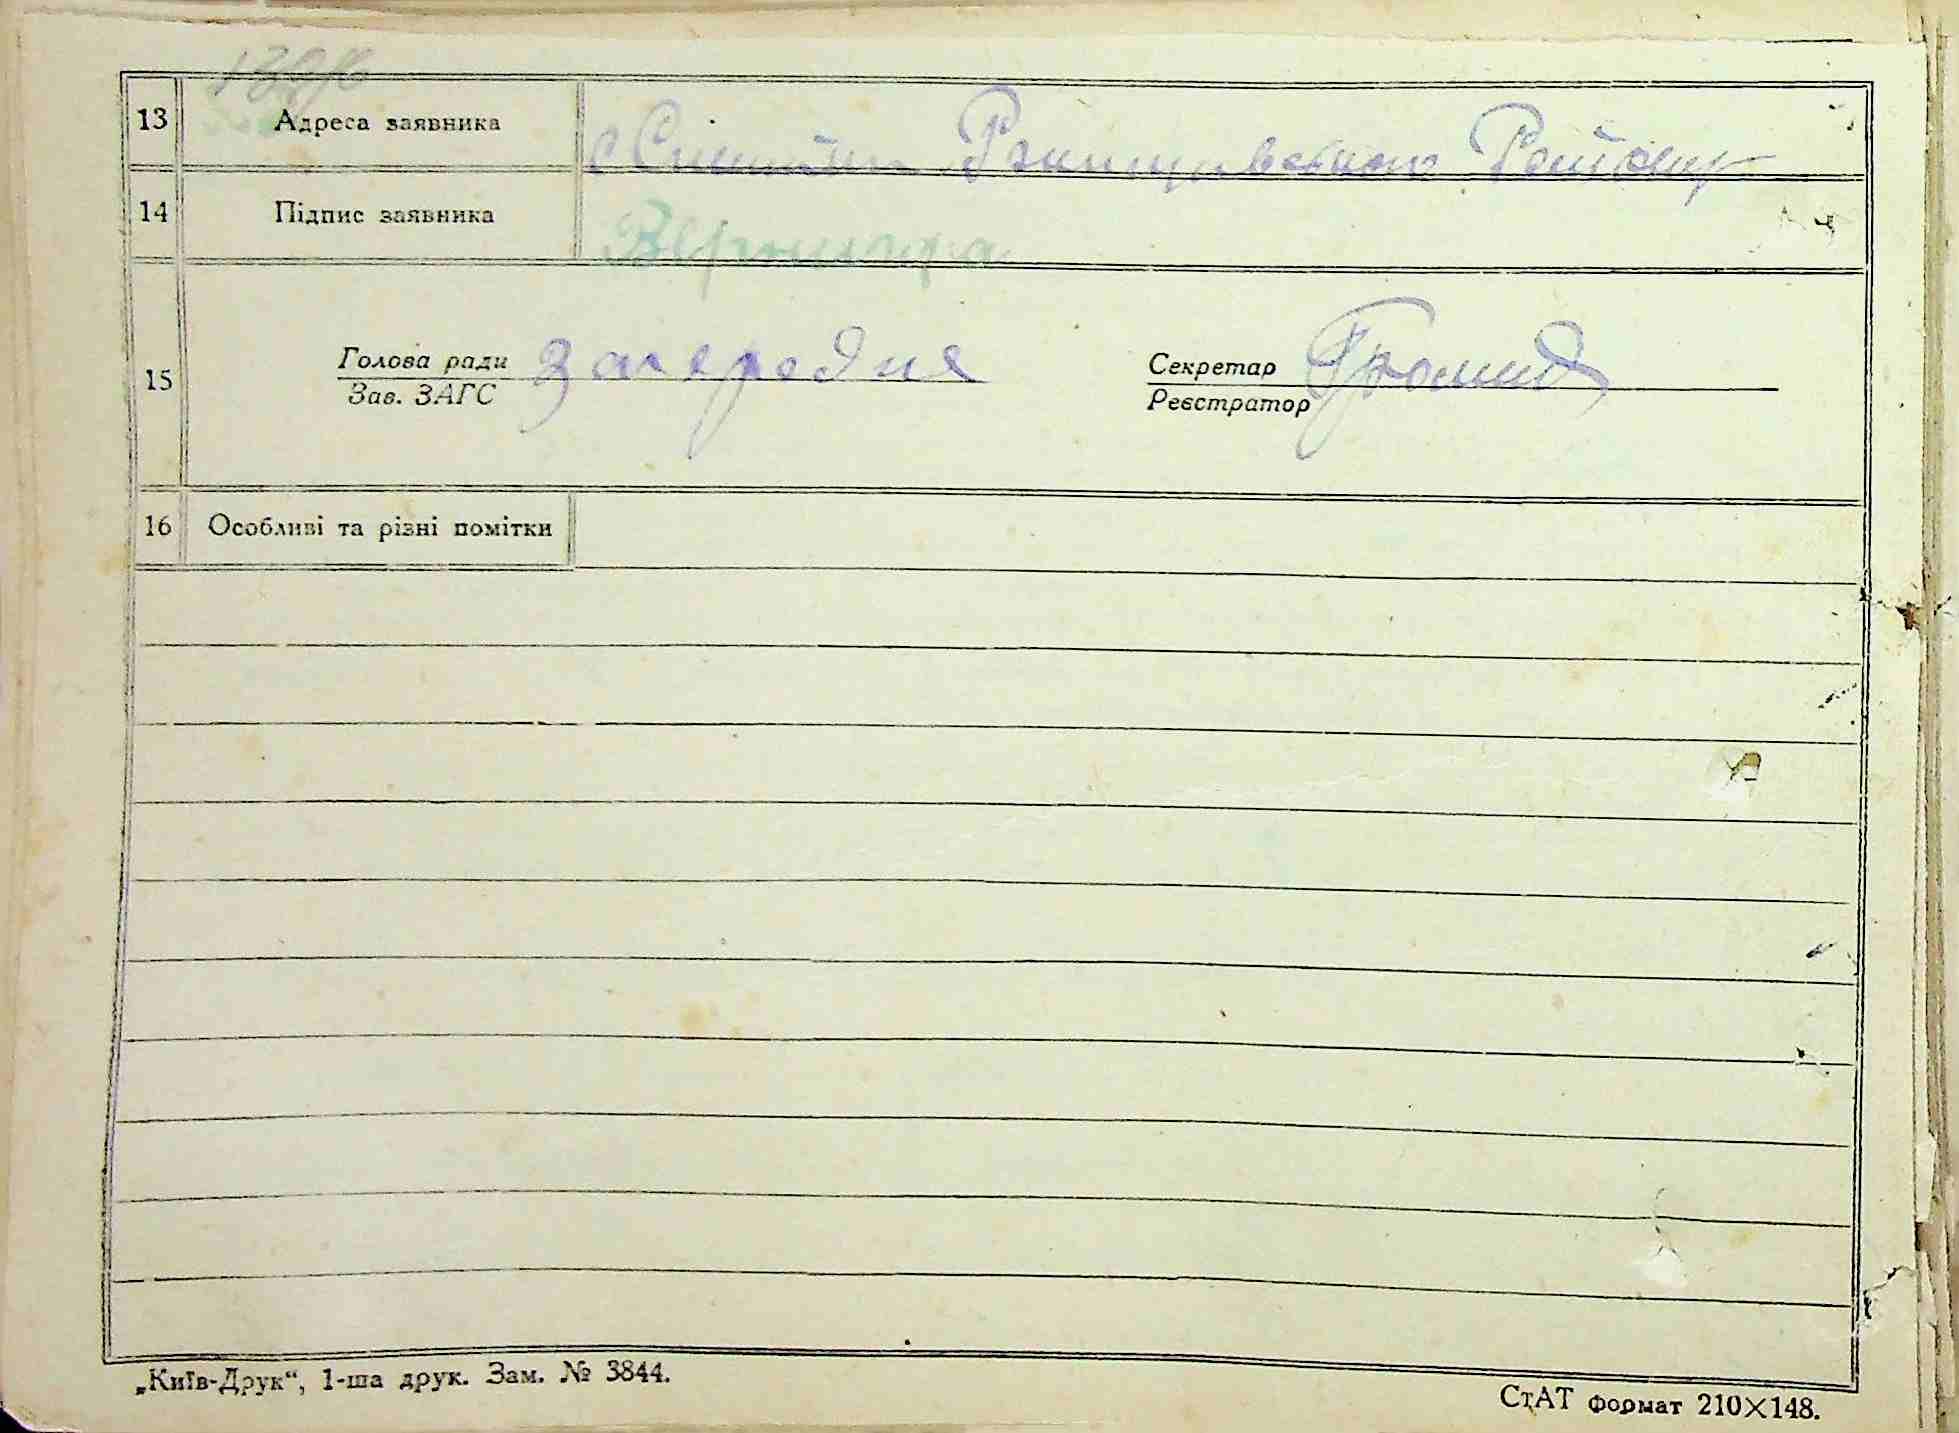 13 Адреса заявника Ржищевского Району
14 Підпис заявника
15 Голова ради Загородня Секретар
Зав. ЗАГС Реєстратор
16 Особливі та різні помітки
„Київ-Друк“, 1-ша друк. Зам. № 3844.
СтАТ формат 210×148.